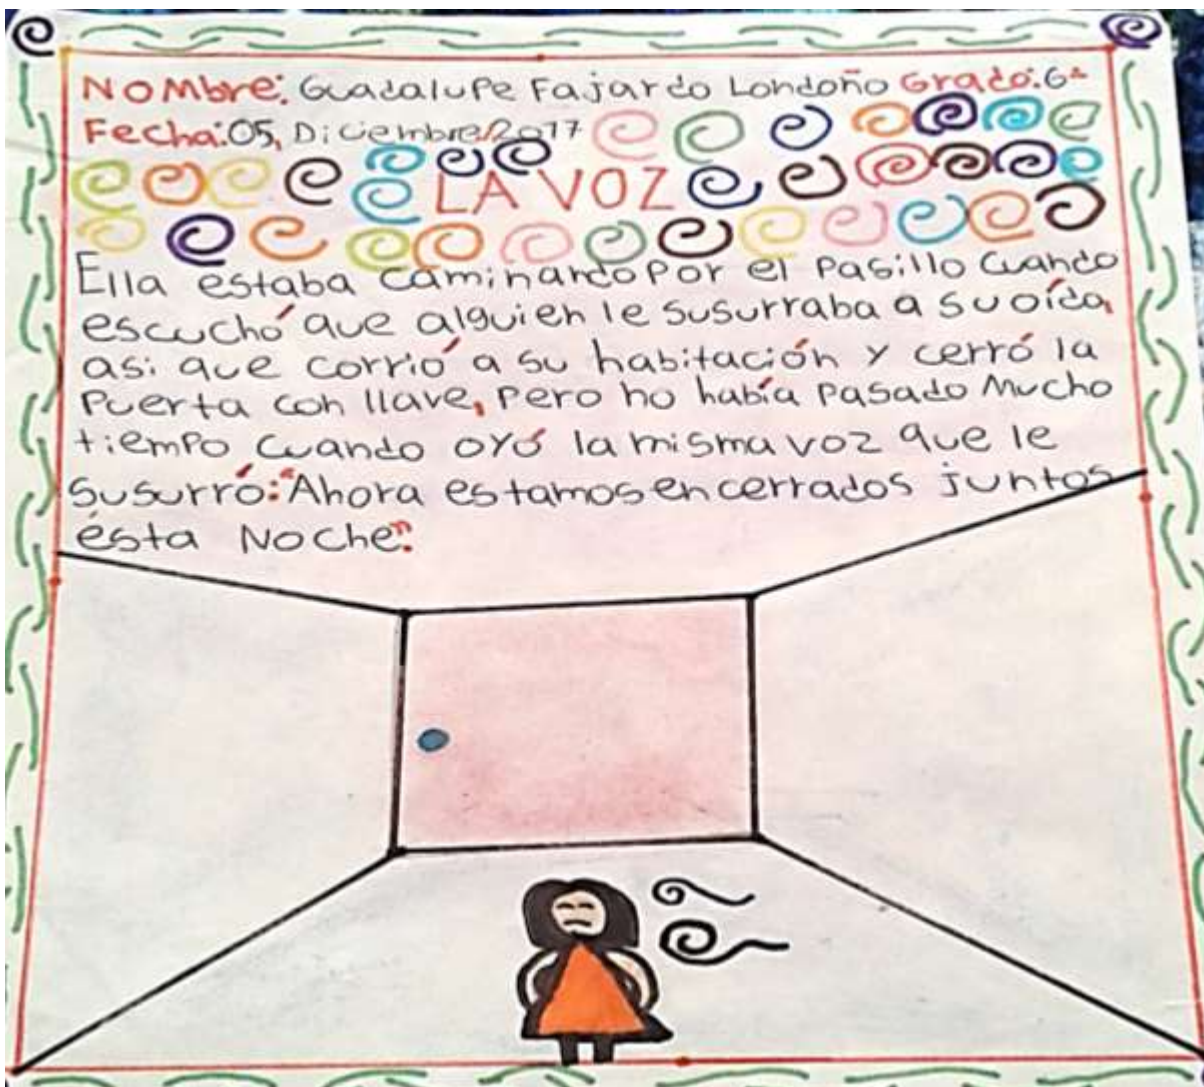 Nombre: Guadalupe Fajardo Londoño Grado: 6ª
Fecha: 05, Diciembre/2017
LA VOZ
Ella estaba caminando por el pasillo cuando
escuchó que alguien le susurraba a su oído,
asi que corrió a su habitación y cerró la
puerta con llave, pero no había pasado mucho
tiempo cuando oyó la misma voz que le
susurró: "Ahora estamos encerrados juntos
ésta Noche".